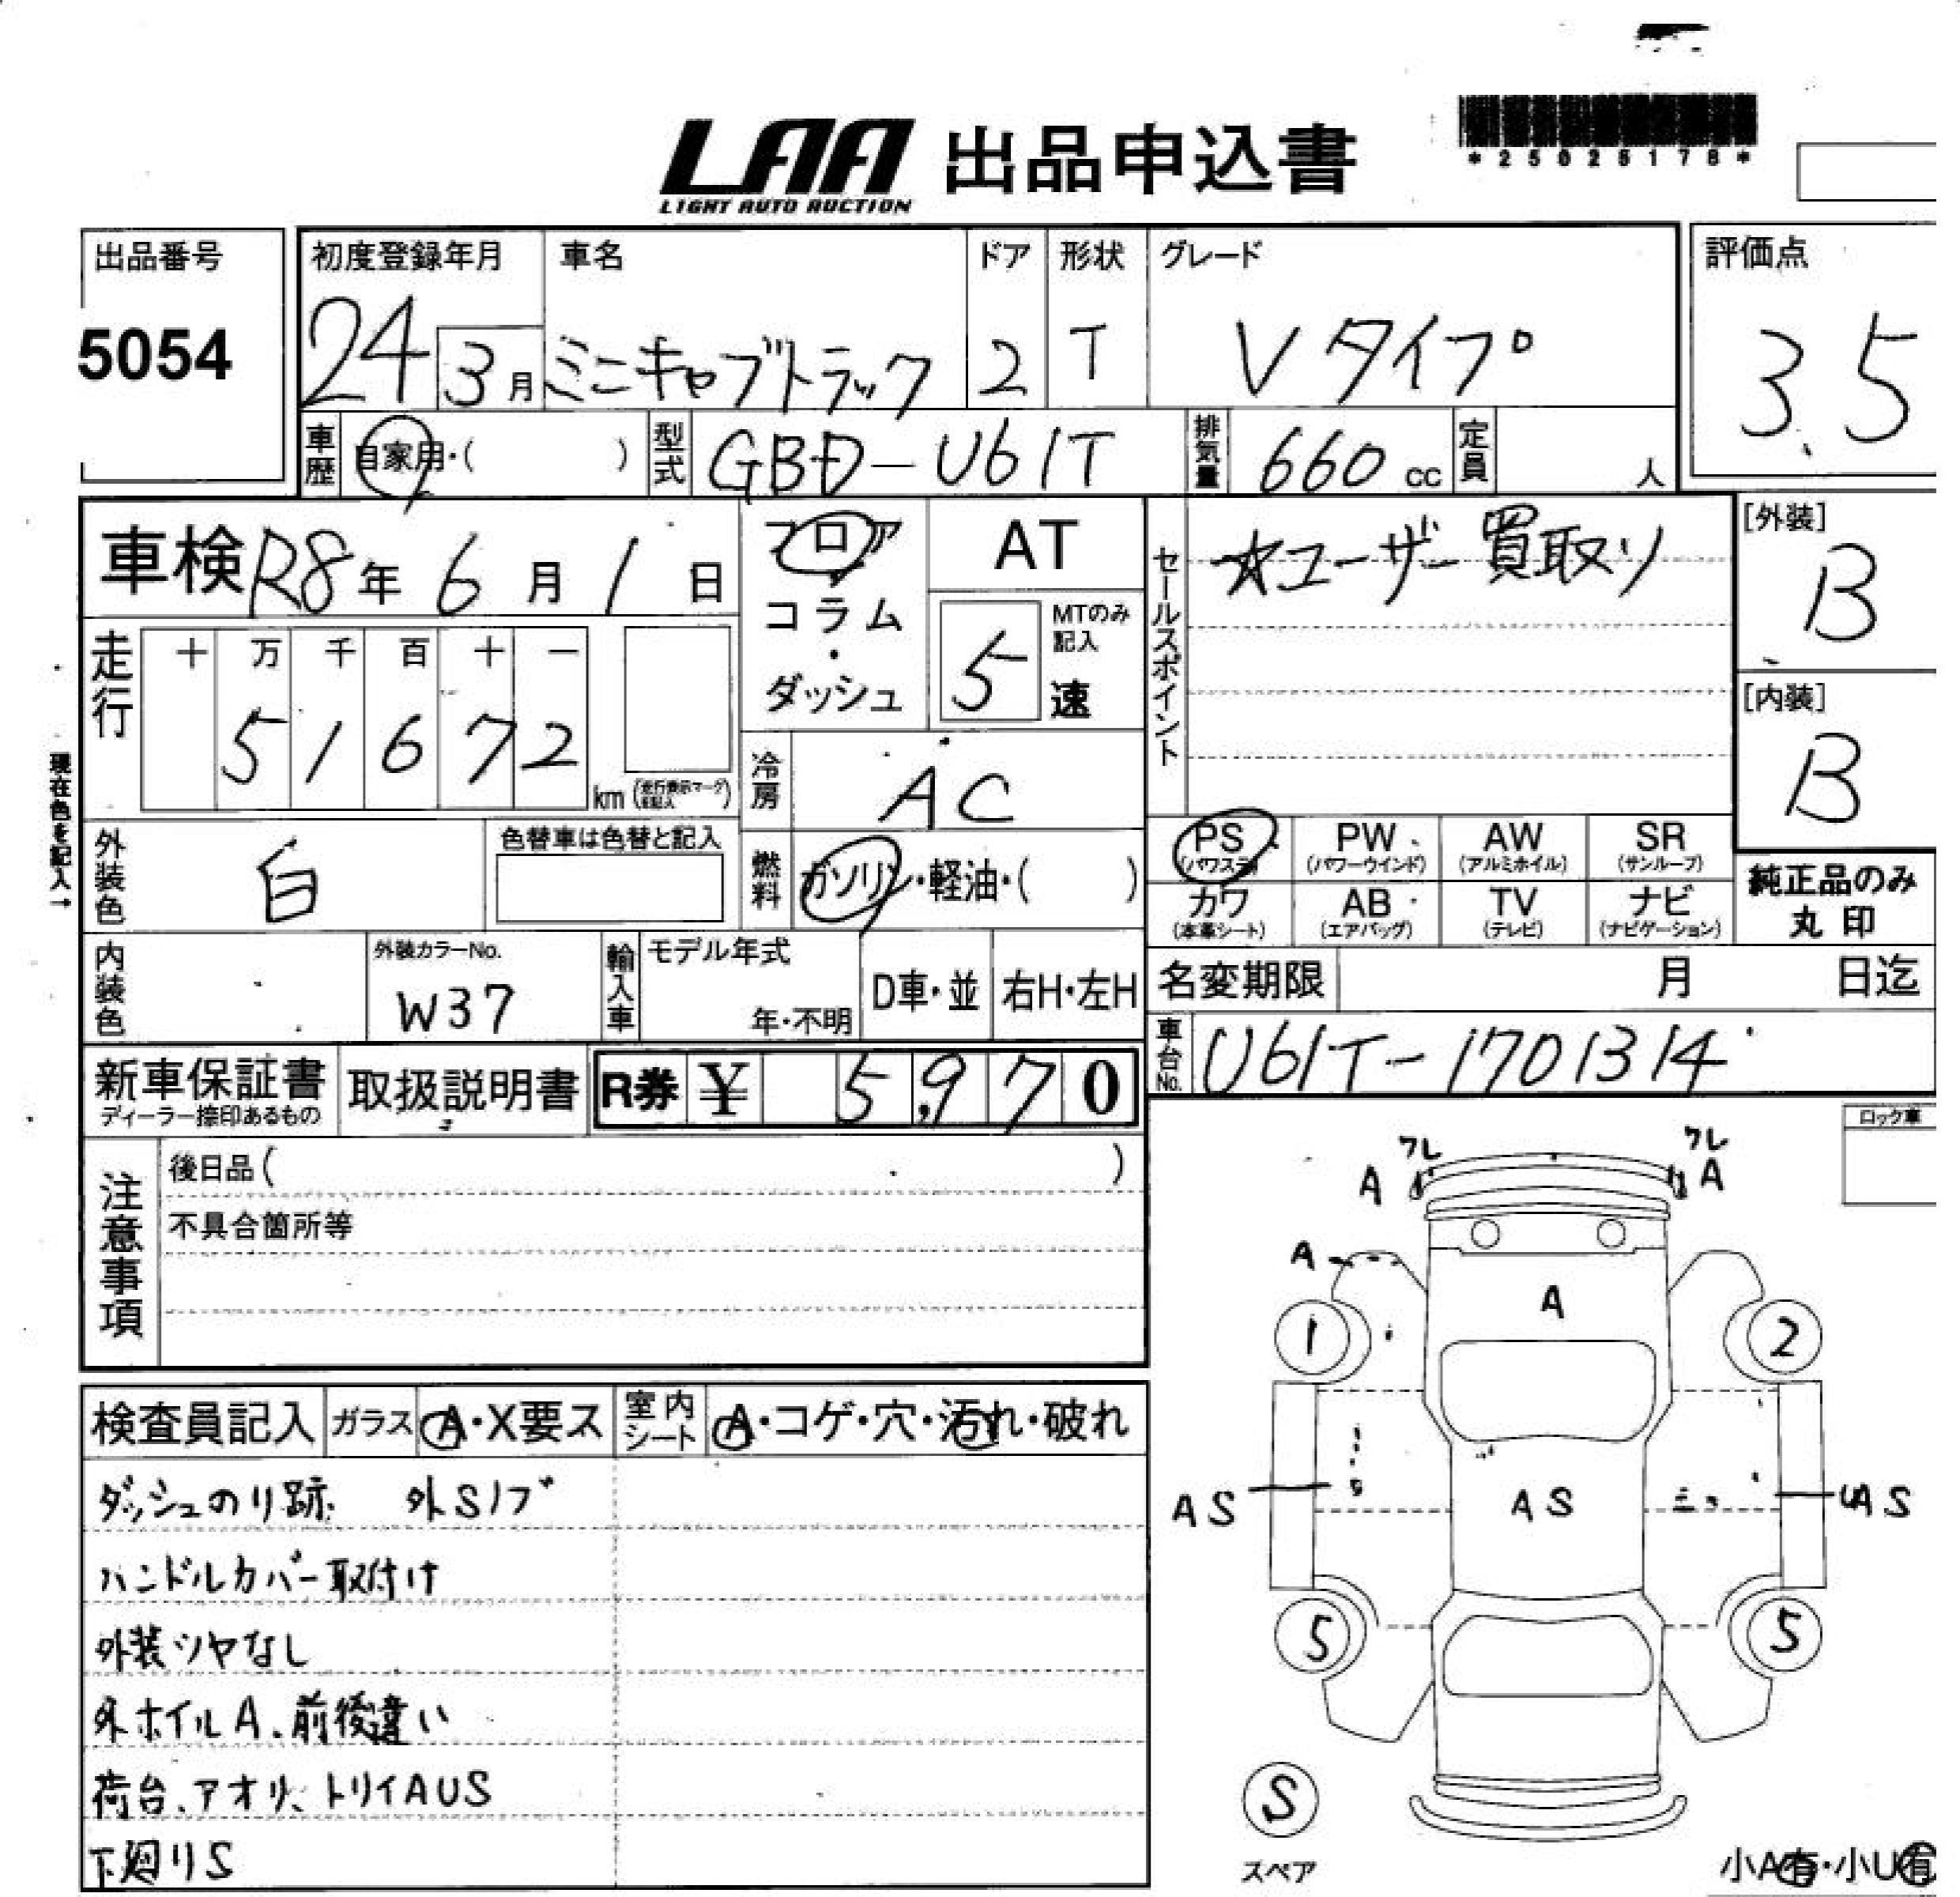 LAA 出品申込書
LIGHT AUTO AUCTION
*25025178*
出品番号
5054
初度登録年月 車名 ドア 形状 グレード
24 3月 ミニキャブトラック 2 T Vタイプ
評価点
3.5
車歴 自家用・( ) 型式 GBD-U61T 排気量 660 cc 定員 人
車検 R8年 6月 1日
フロア・コラム・ダッシュ
AT
5 MTのみ記入 速
セールスポイント
☆ユーザー買取り
[外装]
B
[内装]
B
走行 十 万 千 百 十 一
5 1 6 7 2 km
現在色を記入→
冷房 AC
外装色 白 色替車は色替と記入
燃料 ガソリン・軽油・( )
PS (パワステ) PW (パワーウインド) AW (アルミホイル) SR (サンルーフ)
カワ (本革シート) AB (エアバッグ) TV (テレビ) ナビ (ナビゲーション)
純正品のみ
丸印
内装色 外装カラーNo. W37
輸入車 モデル年式 年・不明 D車・並 右H・左H
名変期限 月 日迄
車台No. U61T-1701314
新車保証書 ディーラー捺印あるもの 取扱説明書 R券 ¥ 5,970
注意事項
後日品( )
不具合箇所等
ロック車
ワレ ワレ
A A
A
A
1 2
AS AS UAS
5 5
S
スペア
小A有・小U有
検査員記入 ガラス A・X要ス 室内シート A・コゲ・穴・汚れ・破れ
ダッシュのり跡 外Sノブ
ハンドルカバー取付け
外装ツヤなし
外ホイルA、前後違い
荷台、アオリ、トリイAUS
下廻りS